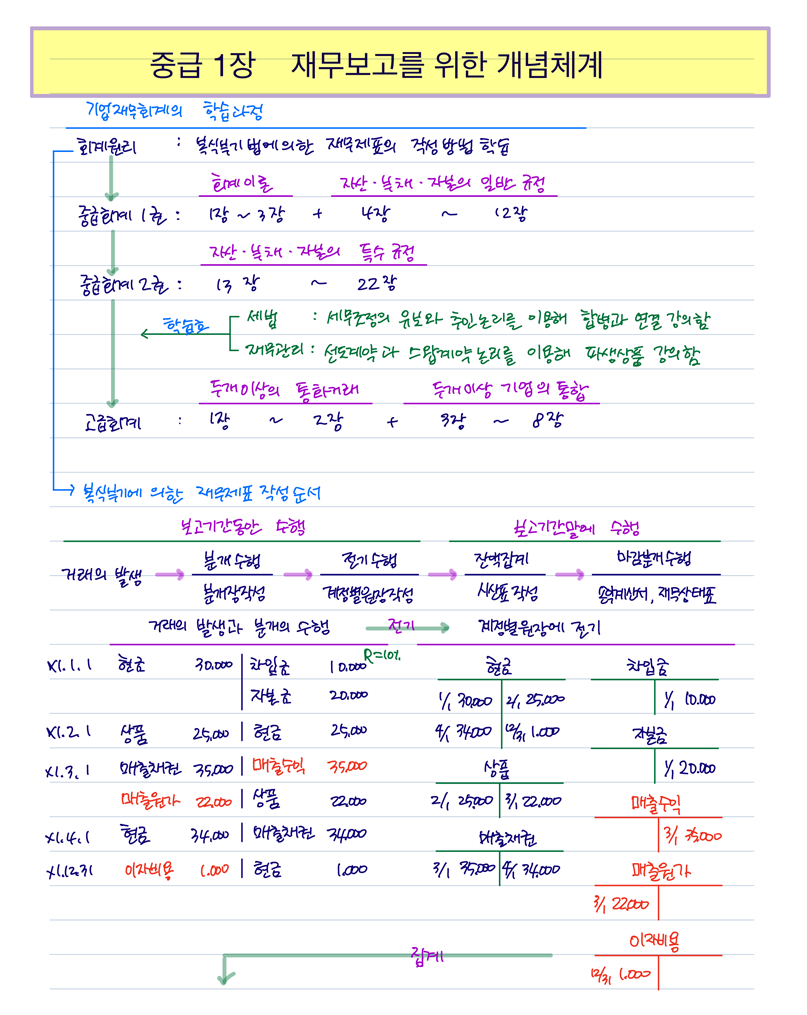 중급 1장 재무보고를 위한 개념체계
기업재무회계의 학습과정
회계원리 : 복식부기법에 의한 재무제표의 작성방법 학습
회계이론 자산·부채·자본의 일반 규정
중급회계 1권 : 1장 ~ 3장 + 4장 ~ 12장
자산·부채·자본의 특수 규정
중급회계 2권 : 13장 ~ 22장
학습효 세법 : 세무조정의 유보와 추인논리를 이용해 합병과 연결 강의함
재무관리 : 선도계약과 스왑계약 논리를 이용해 파생상품 강의함
두개이상의 통화거래 두개이상 기업의 통합
고급회계 : 1장 ~ 2장 + 3장 ~ 8장
복식부기에 의한 재무제표 작성순서
보고기간동안 수행 보고기간말에 수행
분개수행 전기수행 잔액집계 마감분개수행
거래의 발생
분개장작성 계정별원장작성 시산표작성 손익계산서, 재무상태표
거래의 발생과 분개의 수행 전기 계정별원장에 전기
R=10%
X1.1.1 현금 30,000 차입금 10,000
자본금 20,000
X1.2.1 상품 25,000 현금 25,000
X1.3.1 매출채권 35,000 매출수익 35,000
매출원가 22,000 상품 22,000
X1.4.1 현금 34,000 매출채권 34,000
X1.12.31 이자비용 1,000 현금 1,000
현금
1/1 30,000 2/1 25,000
4/1 34,000 12/31 1,000
상품
2/1 25,000 3/1 22,000
매출채권
3/1 35,000 4/1 34,000
차입금
1/1 10,000
자본금
1/1 20,000
매출수익
3/1 35,000
매출원가
3/1 22,000
이자비용
12/31 1,000
집계